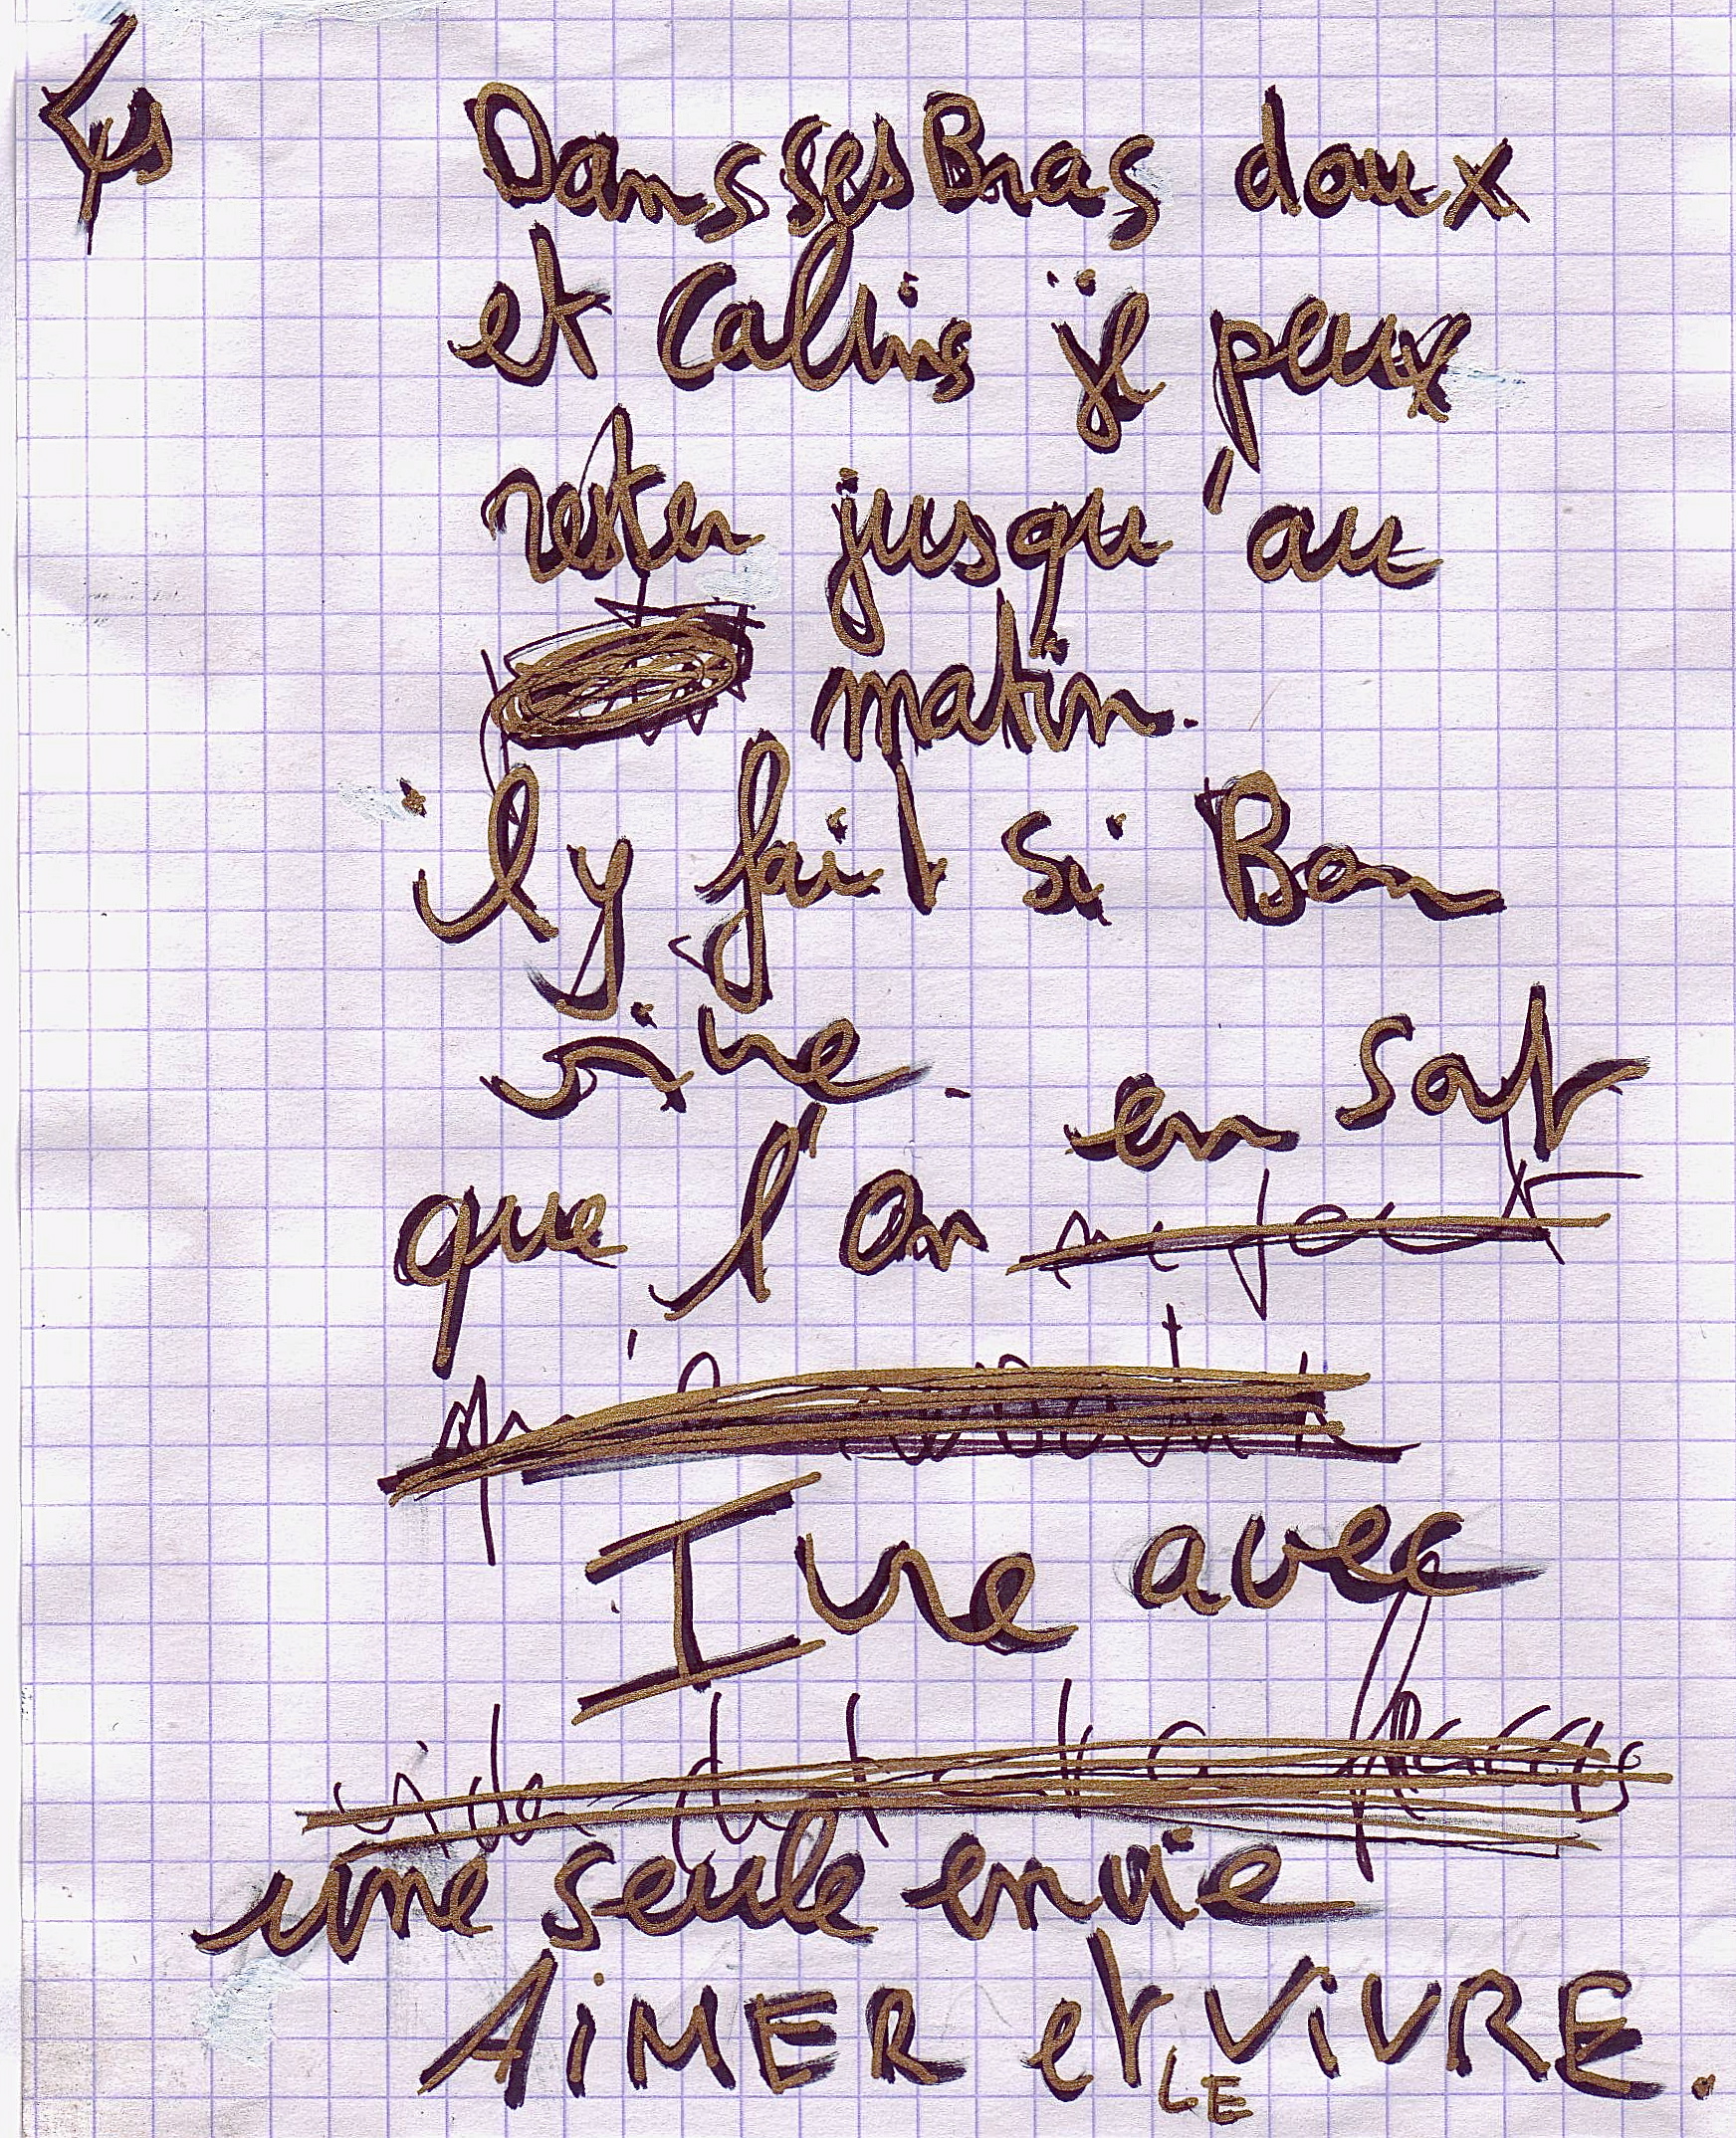 Dans ses Bras doux
et Calins je peux
rester jusqu'au
matin.
il y fait si Bon
vivre.
en sort
que l'On
Ivre avec
une seule envie
AiMER et ViVRE.
LE